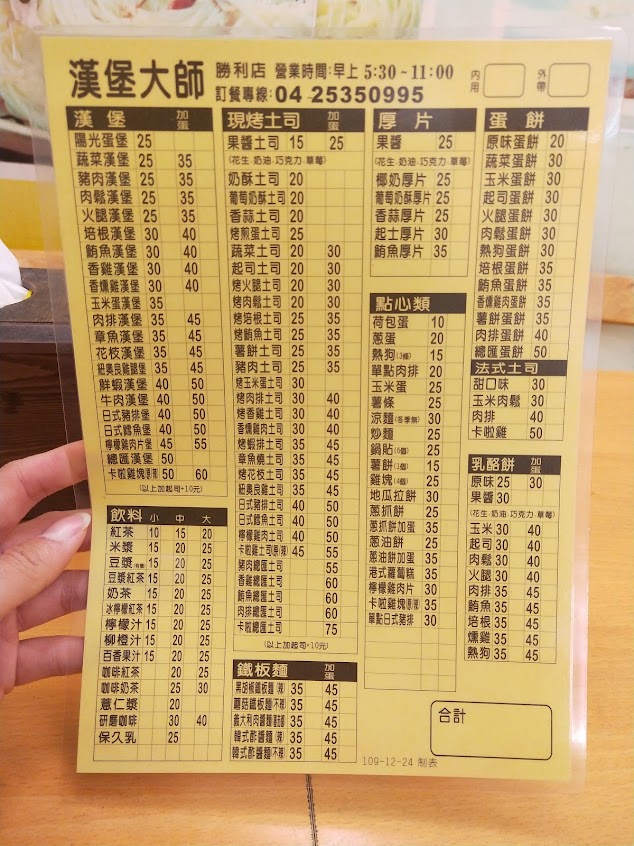 漢堡大師 勝利店 營業時間:早上 5:30~11:00
訂餐專線: 04 25350995
內用
外帶
漢堡 加蛋
陽光蛋堡 25
蔬菜漢堡 25 35
豬肉漢堡 25 35
肉鬆漢堡 25 35
火腿漢堡 25 35
培根漢堡 30 40
鮪魚漢堡 30 40
香雞漢堡 30 40
香燻雞漢堡 30 40
玉米蛋漢堡 35
肉排漢堡 35 45
章魚漢堡 35 45
花枝漢堡 35 45
紐奧良雞腿堡 35 45
鮮蝦漢堡 40 50
牛肉漢堡 40 50
日式豬排堡 40 50
日式鱈魚堡 40 50
檸檬雞肉片堡 45 55
總匯漢堡 50
卡啦雞塊 50 60
(以上加起司+10元)
飲料 小 中 大
紅茶 10 15 20
米漿 15 20 25
豆漿 15 20 25
豆漿紅茶 15 20 25
奶茶 15 20 25
冰檸檬紅茶 15 20 25
檸檬汁 15 20 25
柳橙汁 15 20 25
百香果汁 15 20 25
咖啡紅茶 20 25
咖啡奶茶 25 30
薏仁漿 20
研磨咖啡 30 40
保久乳 25
現烤土司 加蛋
果醬土司 15 25
(花生.奶油.巧克力.草莓)
奶酥土司 20
葡萄奶酥土司 20
香蒜土司 20
烤煎蛋土司 20
蔬菜土司 20 30
起司土司 20 30
烤火腿土司 20 30
烤肉鬆土司 20 30
烤培根土司 25 35
烤鮪魚土司 25 35
薯餅土司 25 35
豬肉土司 25 35
烤玉米蛋土司 30
烤肉排土司 30 40
烤香雞土司 30 40
香燻雞肉土司 30 40
烤蝦排土司 35 45
章魚燒土司 35 45
烤花枝土司 35 45
紐奧良雞土司 35 45
日式豬排土司 40 50
日式鱈魚土司 40 50
檸檬雞肉土司 40 50
卡啦雞土司(原/辣) 45 55
豬肉總匯土司 55
香雞總匯土司 60
鮪魚總匯土司 60
肉排總匯土司 60
卡啦總匯土司 75
(以上加起司+10元)
鐵板麵 加蛋
黑胡椒鐵板麵(辣) 35 45
蘑菇鐵板麵(不辣) 35 45
義大利肉醬麵 35 45
韓式酢醬麵(辣) 35 45
韓式酢醬麵(不辣) 35 45
厚片
果醬 25
(花生.奶油.巧克力.草莓)
椰奶厚片 25
葡萄奶酥厚片 25
香蒜厚片 25
起士厚片 30
鮪魚厚片 35
點心類
荷包蛋 10
蔥蛋 20
熱狗(3條) 15
單點肉排 20
玉米蛋 25
薯條 25
涼麵(冬季無) 30
炒麵 25
鍋貼 25
薯餅(1個) 15
雞塊 25
地瓜拉餅 30
蔥抓餅 25
蔥抓餅加蛋 35
蔥油餅 25
蔥油餅加蛋 35
港式蘿蔔糕 35
檸檬雞肉片 30
卡啦雞塊 35
單點日式豬排 30
109-12-24 制表
蛋餅
原味蛋餅 20
蔬菜蛋餅 30
玉米蛋餅 30
起司蛋餅 30
火腿蛋餅 30
肉鬆蛋餅 30
熱狗蛋餅 30
培根蛋餅 35
鮪魚蛋餅 35
香燻雞肉蛋餅 35
薯餅蛋餅 35
肉排蛋餅 40
總匯蛋餅 50
法式土司
甜口味 30
玉米肉鬆 30
肉排 40
卡啦雞 50
乳酪餅 加蛋
原味 25 30
果醬 30
(花生.奶油.巧克力.草莓)
玉米 30 40
起司 30 40
肉鬆 30 40
火腿 30 40
肉排 35 45
鮪魚 35 45
培根 35 45
燻雞 35 45
熱狗 35 45
合計